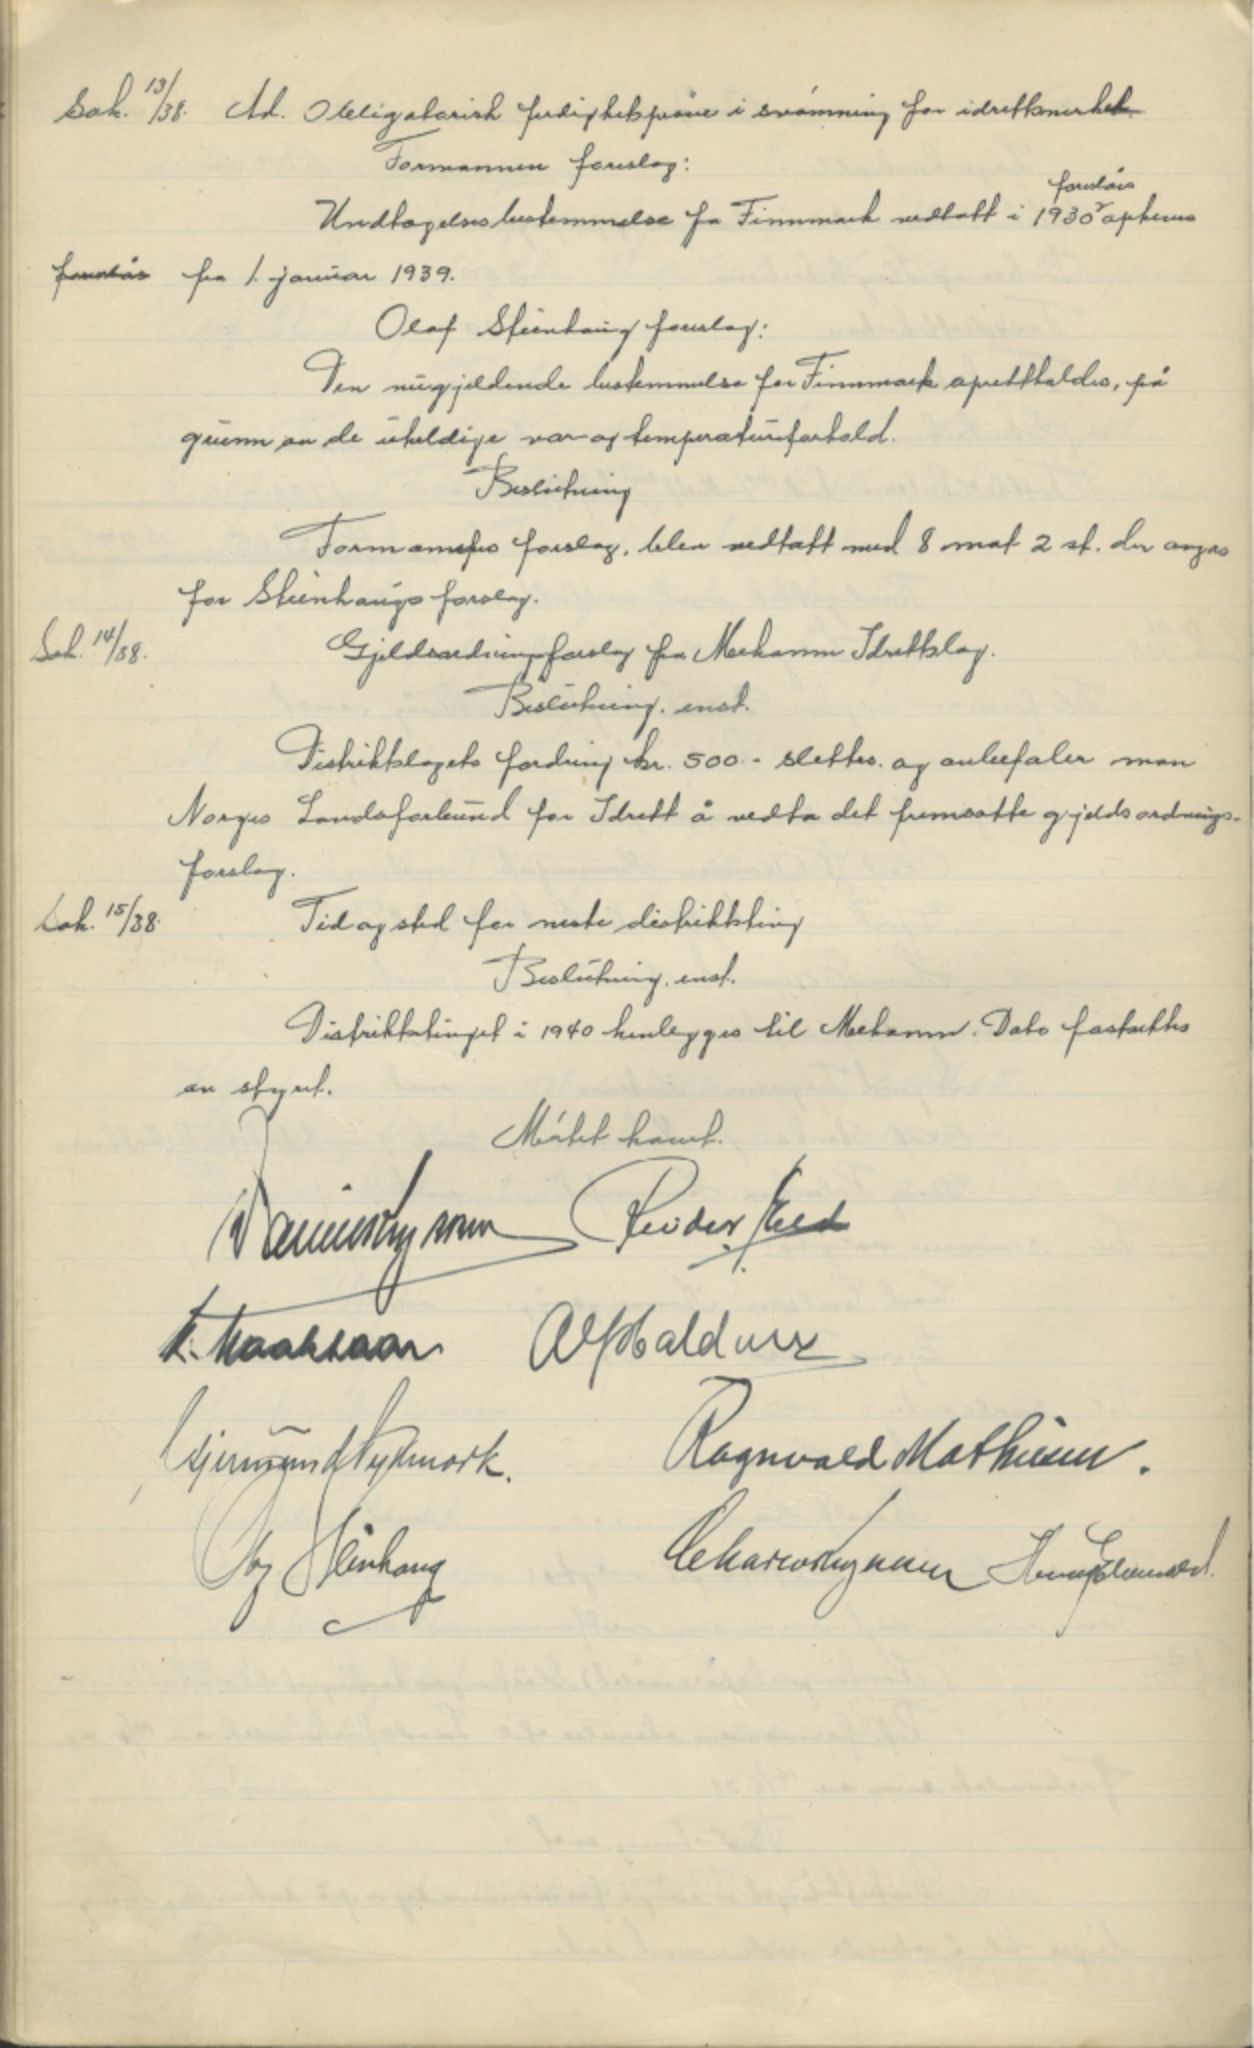 Sak. 13/38. Ad. Obligatorisk ferdighetsprøve i svømning for idrettsmerket.
Formannen foreslog:
foreslåes
Undtagelsesbestemmelse for Finnmark vedtatt i 1930 opheves
foreslås fra 1. januar 1939.
Olaf Steinhaug foreslog:
Den nugjeldende bestemmelse for Finnmark oprettholdes, på
grunn av de uheldige vær og temperaturforhold.
Beslutning
Formannens forslag, blev vedtatt med 8 mot 2 st. der avgas
for Steinhaugs forslag.
Sak. 14/38. Gjeldsordningsforslag fra Mehamn Idrettslag.
Beslutning. enst.
Distriktslagets fordring kr. 500.- slettes. og anbefaler man
Norges Landsforbund for Idrett å vedta det fremsatte gjeldsordnings-
forslag.
Sak. 15/38. Tid og sted for neste distriktsting
Beslutning. enst.
Distriktstinget i 1940 henlegges til Mehamn. Dato fastsettes
av styret.
Møtet hevet.
Reidar
Alf Halduer
Ragnvald Mathisen.
Steinhaug